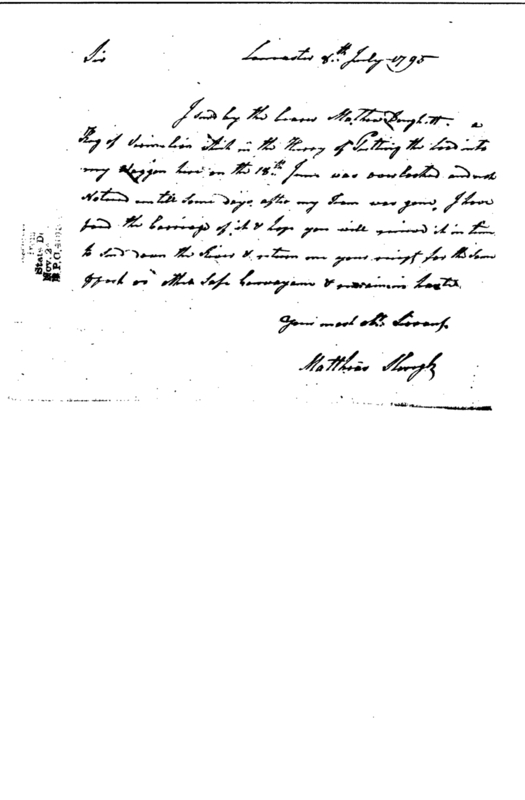 Sir Lancaster 8.th July 1795
I send by the bearer Mathew a
Keg of which in the Hurry of Putting the load into
my Waggon here on the 18th June was overlooked and not
Noticed untill some days after my Team was gone, I have
paid the Carriage of it & hope you will receive it in time
to send down the River & return me your receipt for the same
⅌ post or other Safe Conveyance & remaining
Your most Obt. Servant
Matthias Slough
from
State D.
Nov. 2